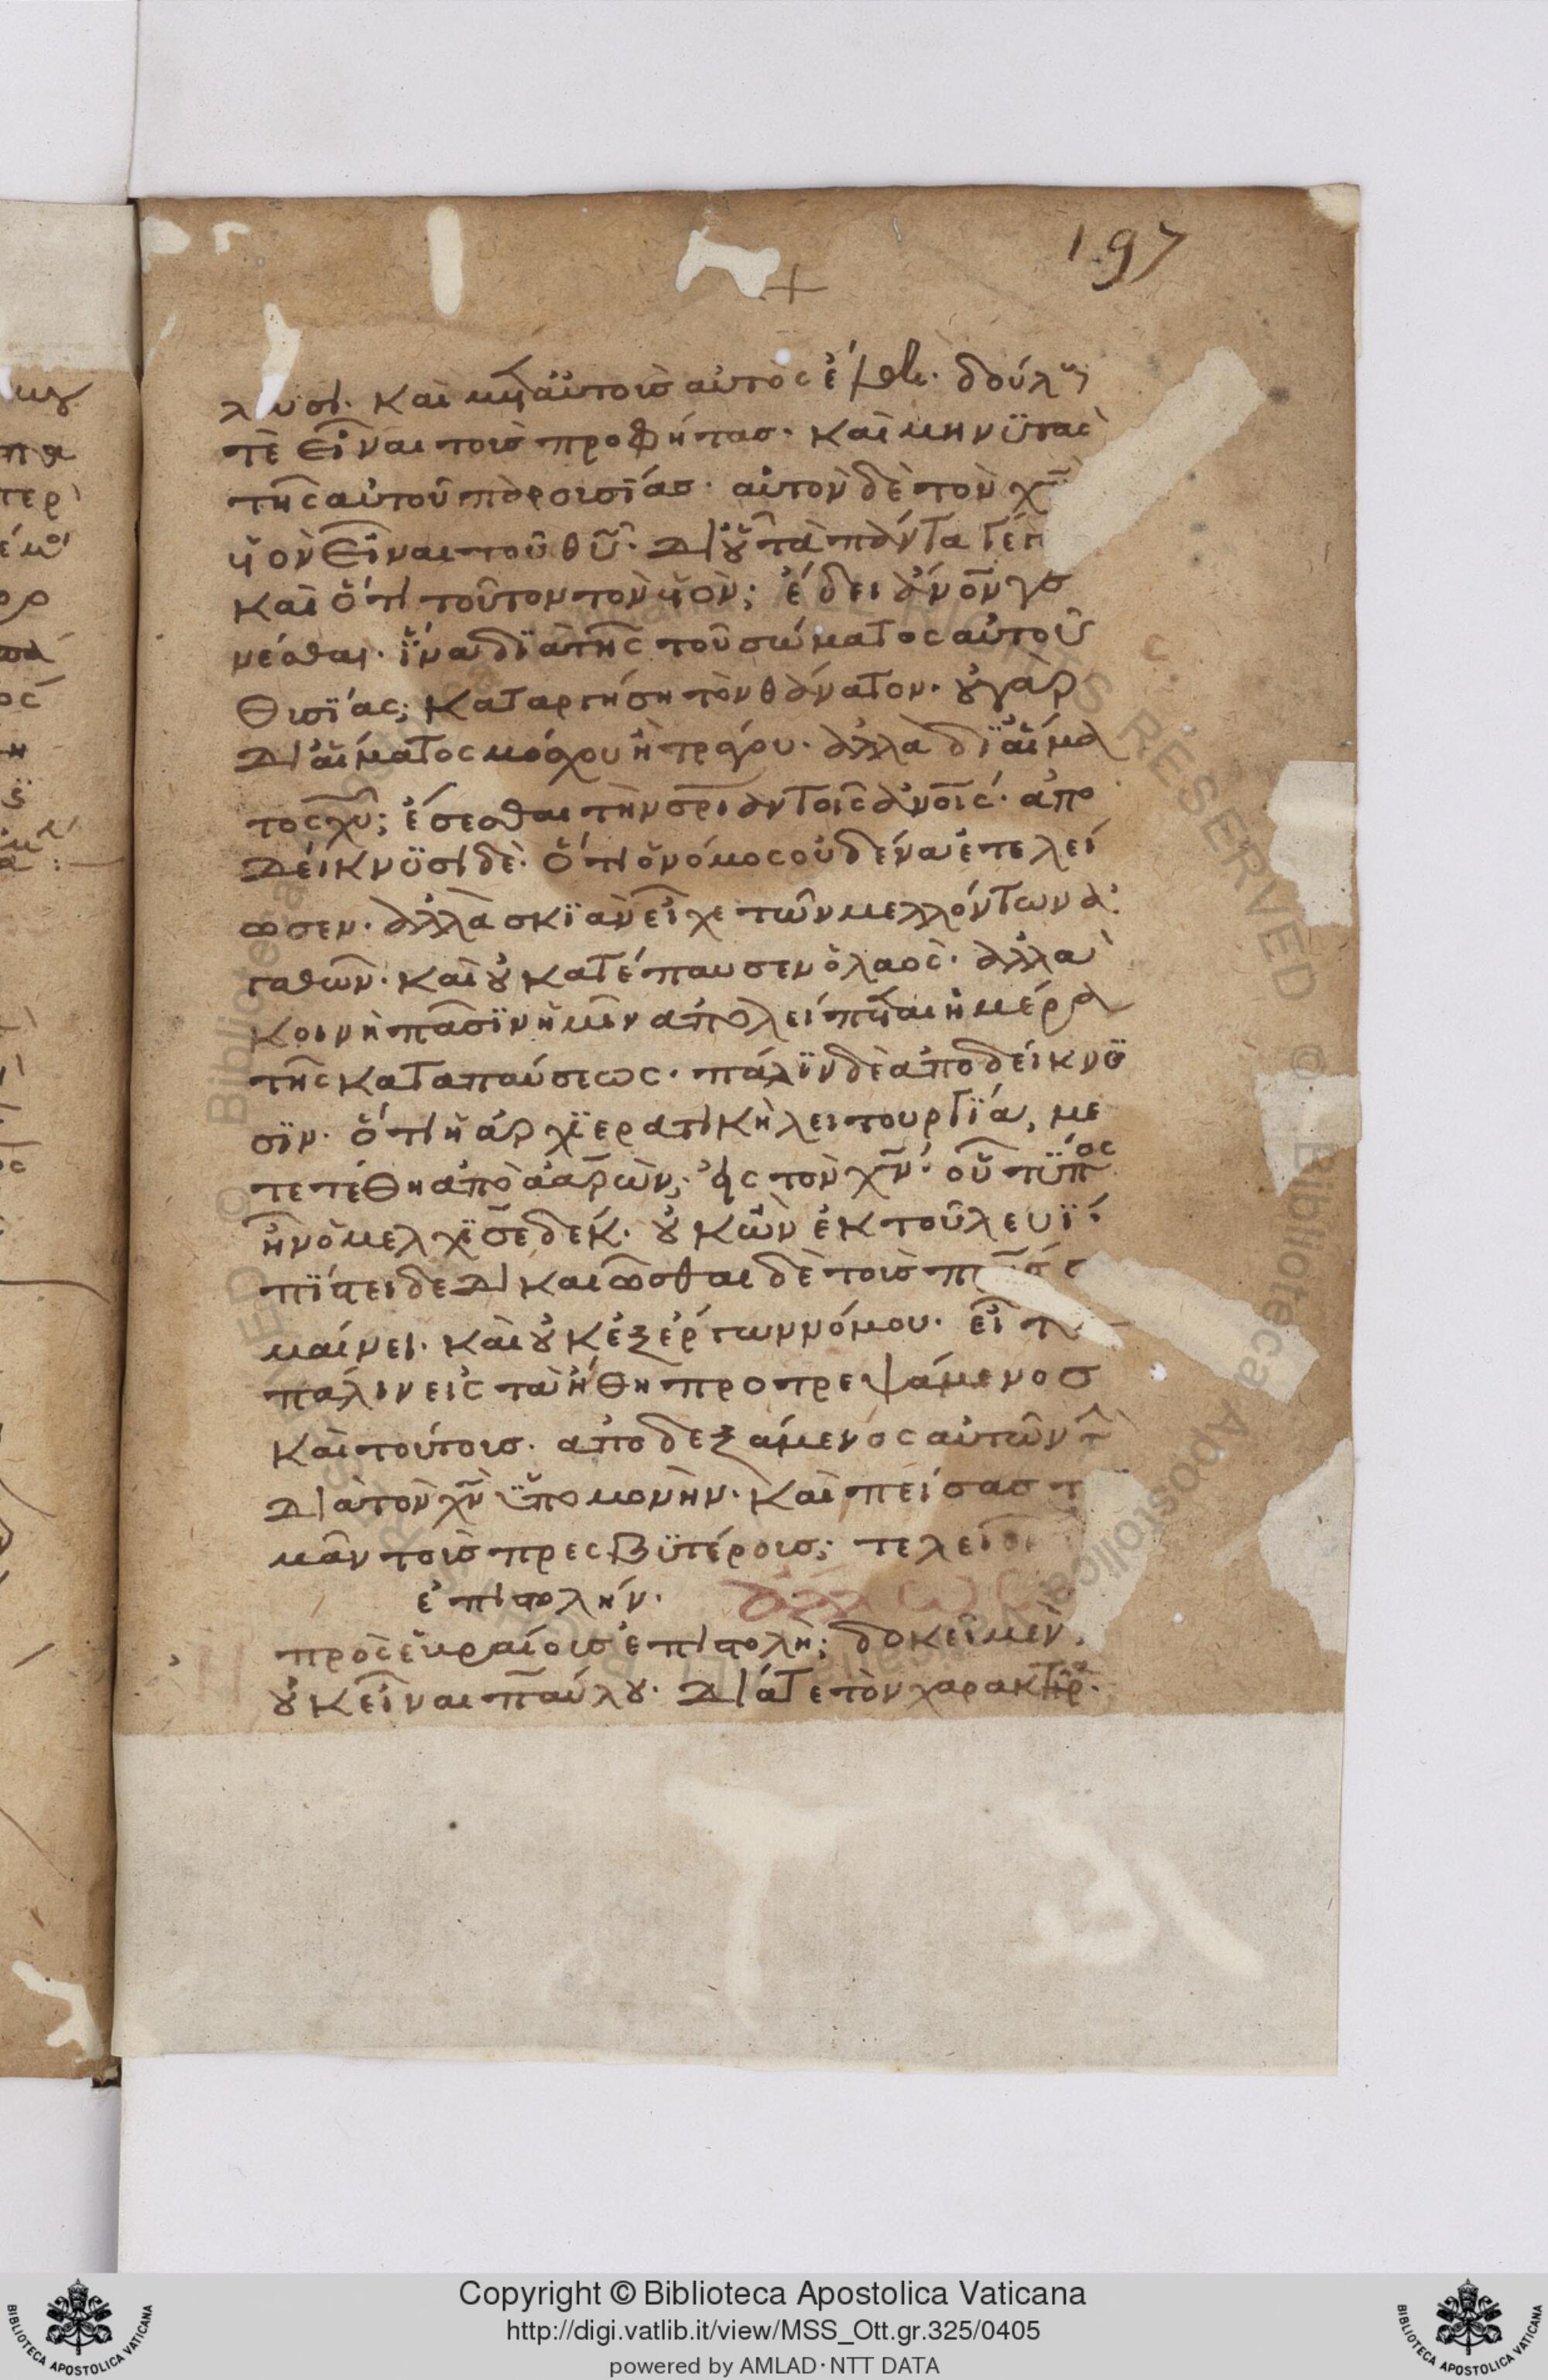 197
+
λουσι. καὶ μεταὐτοισ αὐτὸς ἔρχεται. δούλους
τὲ εἶναι τοισ προφήτασ. καὶ μηνϋτὰς
τῆς αὐτοῦ παρουσΐασ. αὐτον δὲ τὸν χ̅ν̅
υἱὸν εἶναι τοῦ θ̅υ̅. δι οὗ τὰ πάντα γέγ
καὶ ὅτι τοῦτον τὸν υἱὸν; ἔδει ἄν̅ο̅ν γε
νέσθαι. ἵνα δϊατῆς τοῦ σώματος αὐτοῦ
θυσΐας; καταργήση τὸν θάνατον. οὐ γὰρ
δι αἵματος μόσχου ἢ τράγου. ἀλλὰ δϊ αἵμα
τος χ̅υ̅; ἔσεσθαι τὴν σ̅ρ̅ιαν τοῖς ἀν̅ο̅ις. ἀπο
δείκνϋσι δὲ. ὅτι ὁ νόμος οὐδένα ἐτελεί
ωσεν. ἀλλὰ σκϊὰν εἶχε τῶν μελλόντων ἀ
γαθῶν. καὶ οὐ κατέπαυσεν ὁ λαὸς. ἀλλὰ
κοινὴ πᾶσϊν ἡμῖν ἀπολείπεται ἡ μέρα
τῆς καταπαύσεως. πάλϊν δὲ ἀποδείκνϋ
σϊν. ὅτι ἡ ἀρχϊερατικὴ λειτουργΐα, με
τετέθη ἀπὸ ἀαρὼν; εἰς τὸν χ̅ν̅. οὗ τϋπος
ἦν ὁ μελχϊσεδέκ. οὐκ ὢν ἐκ τοῦ λευΐ.
πΐστει δεδικαιῶσθαι δὲ τοισ π̅ρ̅ασ σ
μαίνει. καὶ οὐκ ἐξ ἔργων νόμου. εἶτα
πάλιν εἰς τὰ ἤθη προτρεψάμενοσ
καὶ τούτοισ. ἀποδεξάμενος αὐτῶν τὴν
διὰ τὸν χ̅ν̅ ὑπομονὴν. καὶ πείσασ τ
μᾶν τοῖσ πρεσβϋτέροισ; τελειοῖ
ἐπιστολήν.
πρὸς ἑυραίοισ ἐπιστολὴ; δοκεῖ μὲν
οὐκ εἶναι παύλου. διά τε τὸν χαρακτῆρα.
Copyright © Biblioteca Apostolica Vaticana
http://digi.vatlib.it/view/MSS_Ott.gr.325/0405
powered by AMLAD·NTT DATA